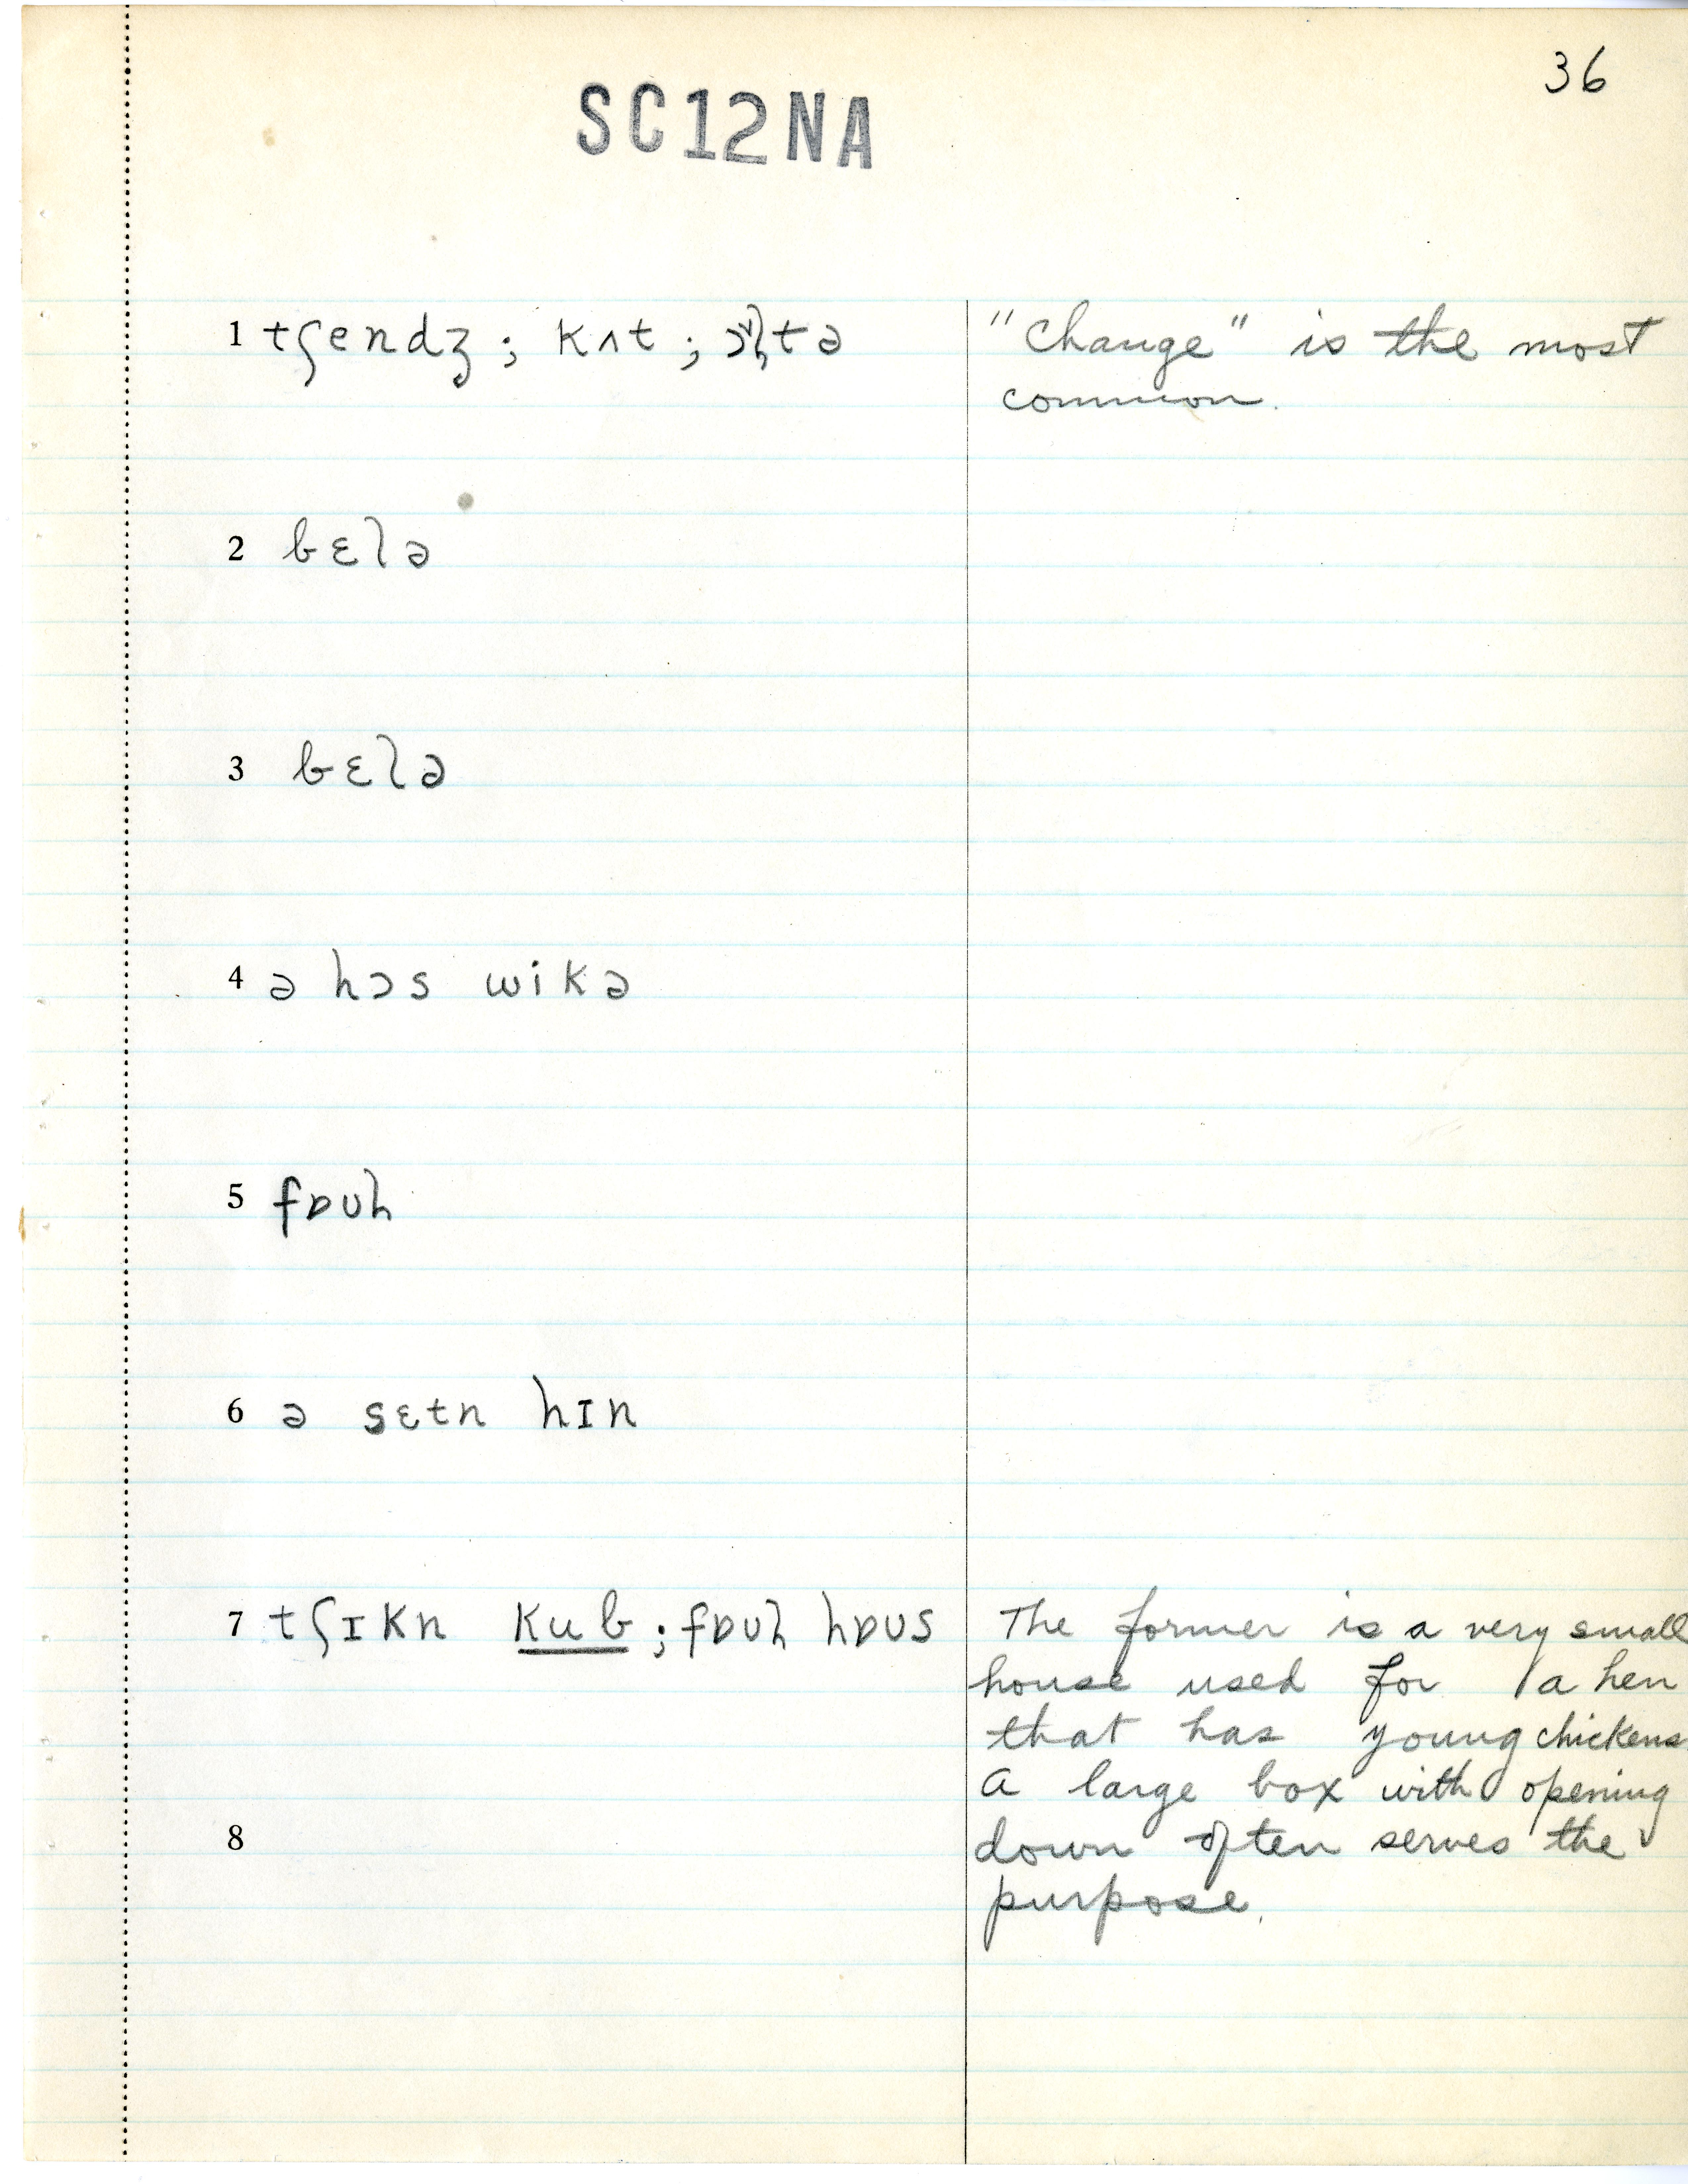 36
SC12NA
1 tʃendʒ; kʌt; ɔltə
"Change" is the most
common.
2 bɛlə
3 bɛlə
4 ə hɔs wikə
5 fɒʊl
6 ə sɛtn hɪn
7 tʃɪkn kub; fɒʊl hɒʊs
The former is a very small
house used for a hen
that has young chickens.
A large box with opening
down often serves the
purpose.
8